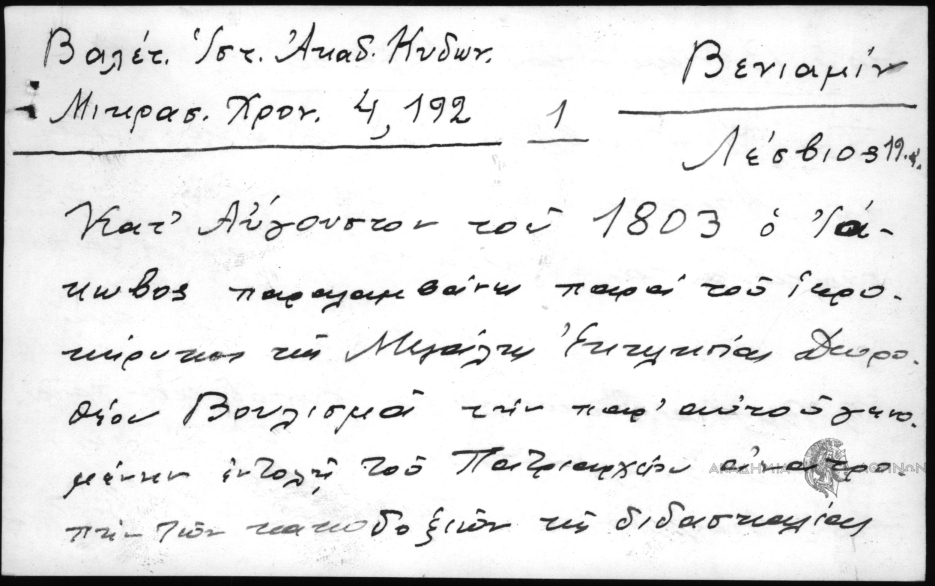 Βαλέτ. Ἱστ. Ἀκαδ. Κυδων.
Μικρασ. Χρον. 4, 192
1
Βενιαμίν
Λέσβιος 19.
Κατ' Αὔγουστον τοῦ 1803 ὁ Ἰά-
κωβος παραλαμβάνει παρὰ τοῦ ἱερο-
κήρυκος τῆς Μεγάλης Ἐκκλησίας Δωρο-
θέου Βουλισμᾶ τὴν παρ' αὐτοῦ γενο-
μένην ἐντολῇ τοῦ Πατριαρχείου ἀνατρο-
πὴν τῶν κακοδοξιῶν τῆς διδασκαλίας
ΑΚΑΔΗΜΙΑ ΑΘΗΝΩΝ